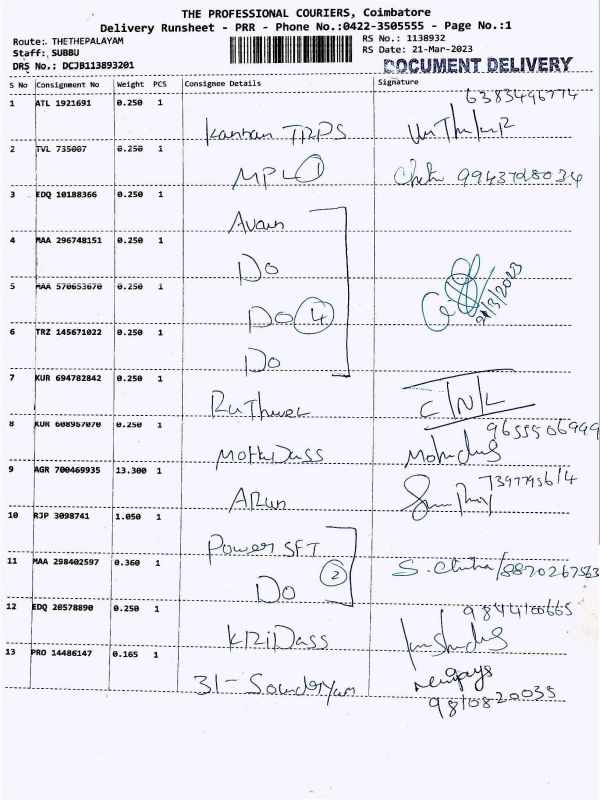 THE PROFESSIONAL COURIERS, Coimbatore
Delivery Runsheet - PRR - Phone No.:0422-3505555 - Page No.:1
Route: THETHEPALAYAM
Staff: SUBBU
DRS No.: DCJB113893201
RS No.: 1138932
RS Date: 21-Mar-2023
DOCUMENT DELIVERY
S No Consignment No Weight PCS Consignee Details Signature
1 ATL 1921691 0.250 1
6383496774
Kannan TRPS
2 TVL 735007 0.250 1
MPL 1
9943708034
3 EDQ 10188366 0.250 1
4 MAA 296748151 0.250 1
Do
5 MAA 570653670 0.250 1
Do 4
21/3/2023
6 TRZ 145671022 0.250 1
Do
7 KUR 694782842 0.250 1
C/N/L
8 KUR 608967070 0.250 1
9655506999
9 AGR 700469935 13.300 1
Arun
10 RJP 3098741 1.050 1
Power SFT
11 MAA 298402597 0.360 1
Do 2
8870267563
12 EDQ 20578890 0.250 1
13 PRO 14486147 0.165 1
9810820035